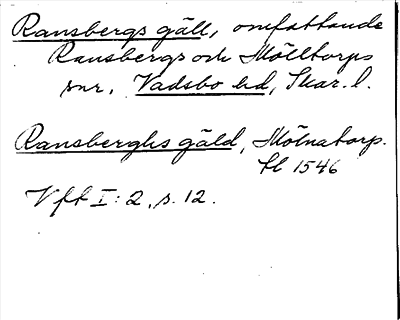 Ransbergs gäll, omfattande
Ransbergs och Mölltorps
snr, Vadsbo hd, Skar. l.
Ransberghs gäld, Mölnatorp.
1546
Vft I: 2, s. 12.